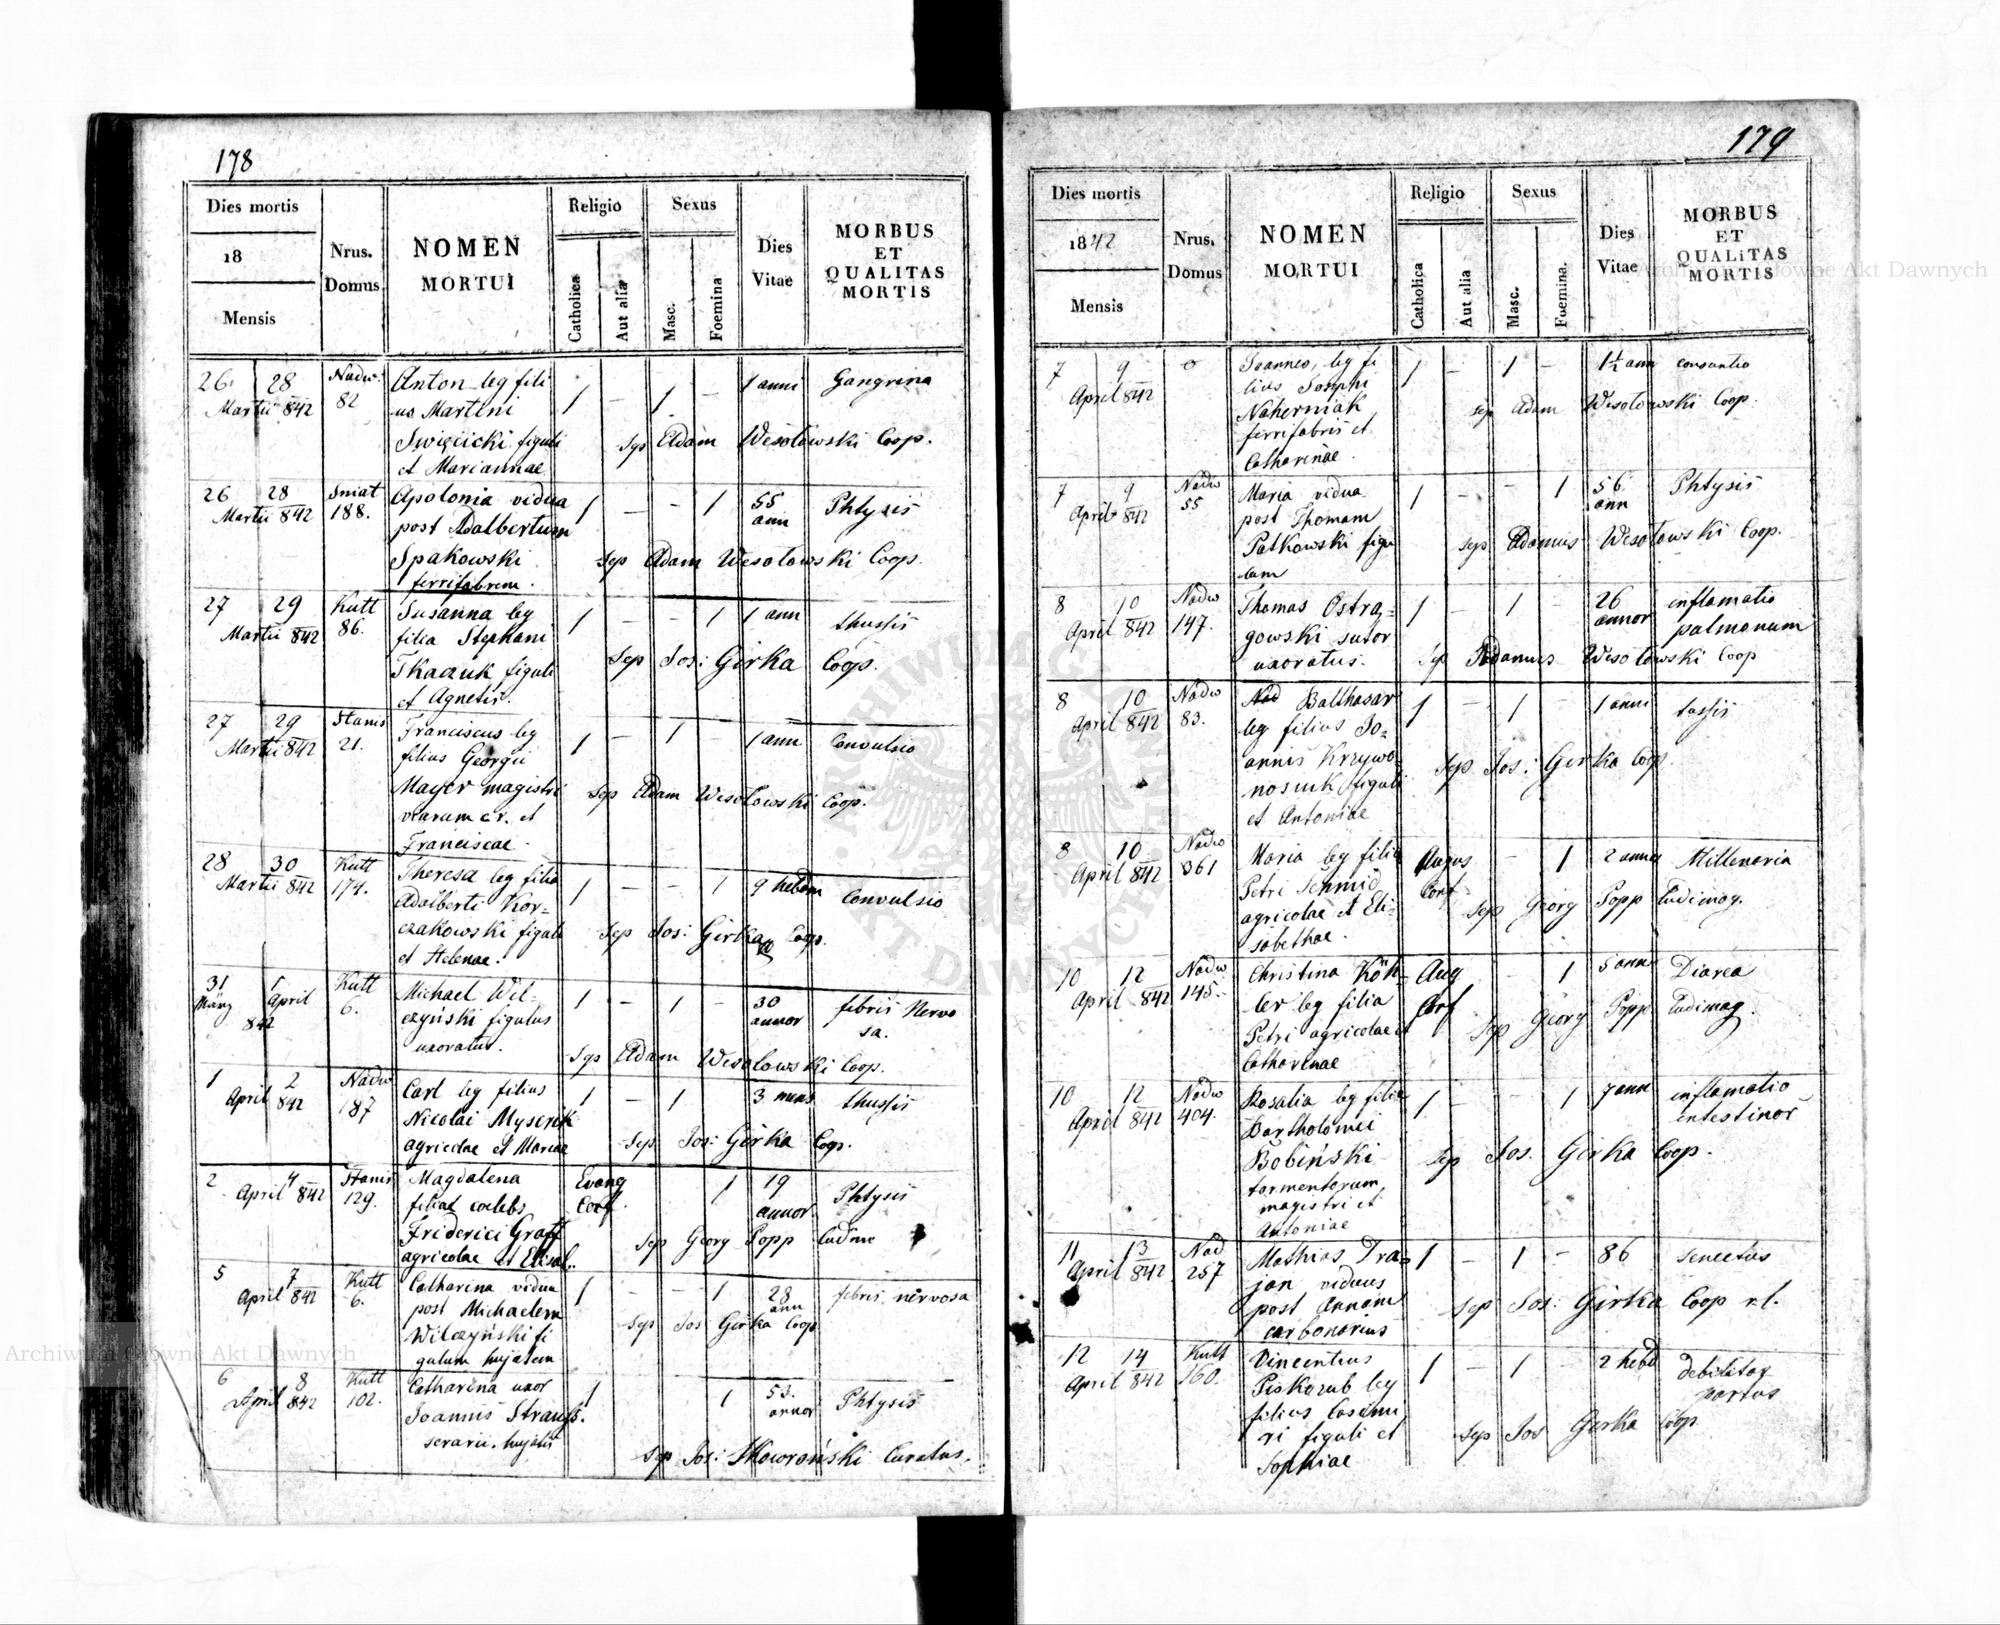 178
Dies mortis
18
Mensis
Nrus. Domus
NOMEN MORTUI
Religio
Catholica
Aut alia
Sexus
Masc.
Foemina
Dies Vitae
MORBUS ET QUALITAS MORTIS
26 28 Nadw. Anton leg fili 1 — 1 — 1 anni Gangrina
Martii 842 82 us Martini
Swięcicki figuli Sep Adam Wesołowski Coop.
et Mariannae
26 28 Sniat Apolonia vidua 1 — — 1 55 Phtysis
Martii 842 188. post Adalbertum ann
Spakowski Sep Adam Wesołowski Coop.
ferrifabrem.
27 29 Kutt Susanna leg 1 — — 1 1 ann thussis
Martii 842 86. filia Stephani
Tkaczuk figuli Sep Jos: Girka Coop.
et Agnetis.
27 29 Stanis Franciscus leg 1 — 1 — 1 ann Convulsio
Martii 842 21. filius Georgii
Mayer magistri Sep Adam Wesołowski Coop.
viarum c.r. et
Franciscae.
28 30 Kutt Theresa leg filia 1 — — 1 9 hebdm Convulsio
Martii 842 174. Adalberti Kor-
czakowski figuli Sep Jos: Girka Coop.
et Helenae.
31 1 Kutt Michael Wil- 1 — 1 — 30 febris Nervo
März April 6. czyński figulus annor sa.
842 uxoratus. Sep Adam Wesołowski Coop.
1 2 Nadw Carl leg filius 1 — 1 3 mens thussis
April 842 187 Nicolai Myserik
agricolae et Mariae Sep Jos: Girka Coop.
2 4 Stanis Magdalena Evang 1 19 Phtysis
April 842 129. filia coelebs Conf. annor
Friderici Graff Sep Georg Popp
agricolae et Elisab.
5 7 Kutt Catharina vidua 1 — — 1 28 febris nervosa
April 842 6. post Michaelem ann
Wilczyński fi Sep Jos Girka Coop
gulum hujatem
6 8 Kutt Catharina uxor 1 1 53. Phtysis
April 842 102. Joannis Strauss. annor
serarii hujatis
Sep Jos: Skowroński Curatus.
179
Dies mortis
1842
Mensis
Nrus. Domus
NOMEN MORTUI
Religio
Catholica
Aut alia
Sexus
Masc.
Foemina.
Dies Vitae
MORBUS ET QUALITAS MORTIS
7 9 0 Joannes, leg fi 1 — 1 — 1½ ann
April 842 lius Josephi
Sep Adam Wesołowski Coop.
ferrifabris et
Catharinae.
7 9 Nadw Maria vidua 1 — — 1 56 Phtysis
April 842 55 post Thomam ann
Patkowski figu Sep Adamus Wesołowski Coop.
lum
8 10 Nadw Thomas Ostra- 1 — 1 — 26 inflamatio
April 842 147. gowski sutor annor pulmonum
uxoratus. Sep Adamus Wesołowski Coop
8 10 Nadw Balthasar 1 1 — 1 anni tussis
April 842 83. leg filius Jo-
annis Krzywo Sep Jos: Girka Coop.
nosiuk figuli
et Antoniae
8 10 Nadw Maria leg filia Augus — 1 2 annor Millenaria
April 842 361 Petri Schmid Conf
agricolae et Eli- Sep Georg Popp Ludimag.
sabethae.
10 12 Nadw Christina Köh- Aug — 1 5 ann Diarea
April 842 145. ler leg filia Conf
Petri agricolae et Sep Georg Popp Ludimag.
Catharinae
10 12 Nadw Rosalia leg filia 1 — — 1 7 ann inflamatio
April 842 404. Bartholomei intestinor
Bobiński Sep Jos. Girka Coop.
tormentorum
magistri et
Antoniae
11 13 Nad Mathias Tra- 1 — 1 — 86 senectus
April 842 257 jan viduus
post Annam Sep Jos: Girka Coop r.l.
carbonarius
12 14 Kutt Vincentius 1 — 1 — 2 hebd debilitas
April 842 160. Piskozub leg partus
filius Casimi
ri figuli et Sep Jos Girka Coop.
Sophiae
Archiwum Główne Akt Dawnych
Archiwum Główne Akt Dawnych
ARCHIWUM GŁÓWNE AKT DAWNYCH